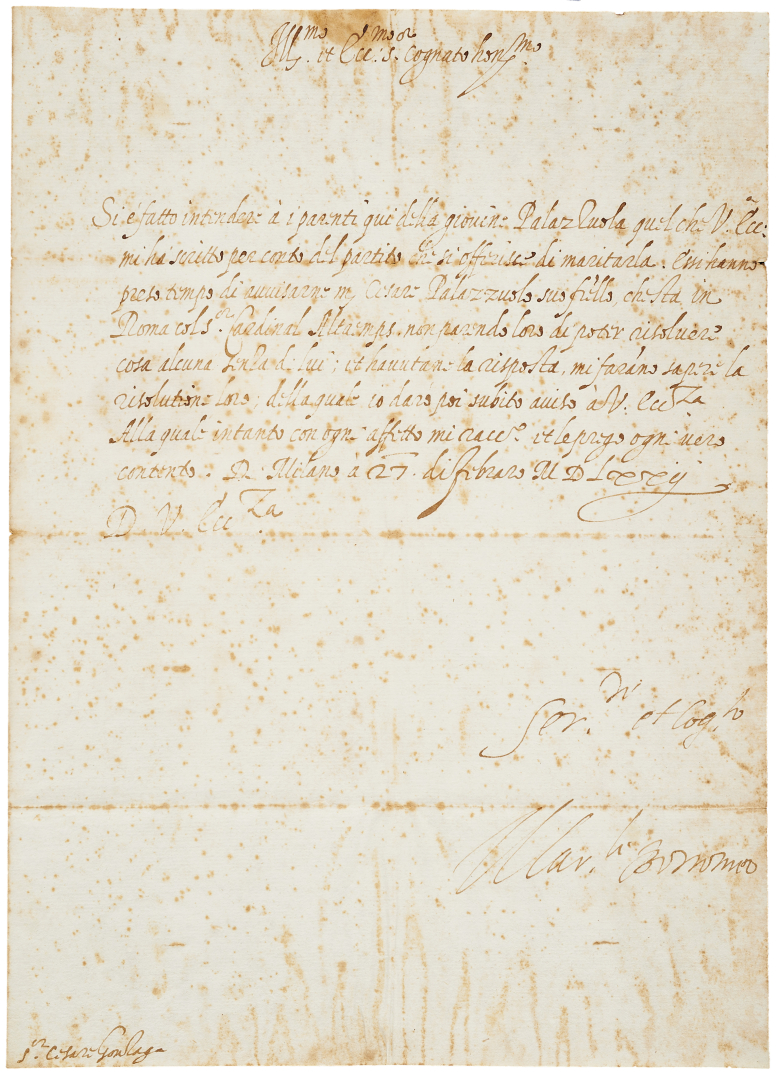 Ill.mo et Ecc.mo s.or Cognato hon.mo
Si e fatto intendere à i parenti qui della giovine Palazzuola quel che V. Ecc.
mi ha scritto per conto del partito che si offerisce di maritarla. Essi hanno
preso tempo di avvisarne m. Cesare Palazzuolo suo fr̃ello, che sta in
Roma col s.or Cardinal Altaemps, non parendo loro di poter risolvere
cosa alcuna senza di lui; et havutane la risposta, mi farãno sapere la
risolutione loro; della quale io daro poi subito aviso à V. Ecc.za
Alla quale intanto con ogni affetto mi racc.o et le prego ogni vero
contento. Di Milano à 27. di Febraro M D Lxxij
D. V. Ecc.za
Ser.
et Cog.to
Car.le Borromeo
s.or Cesare Gonzaga